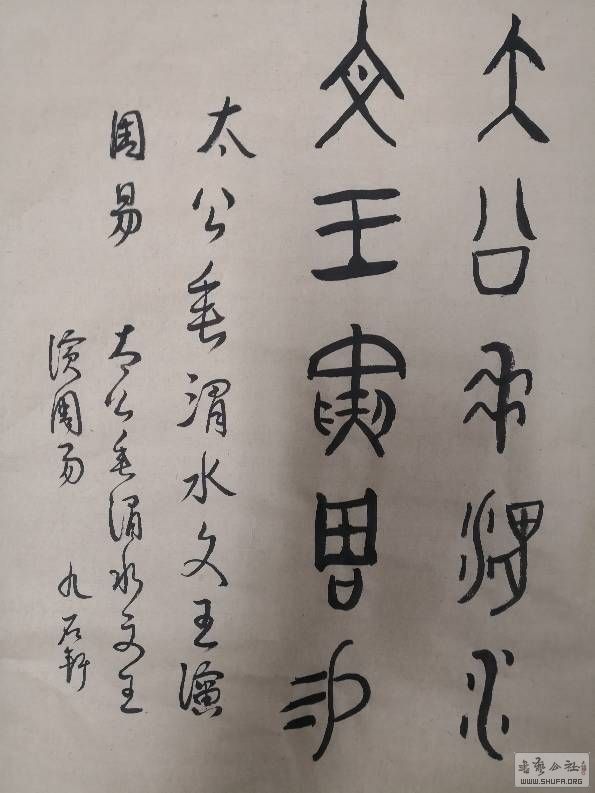 太公垂渭水
文王演周易
太公垂渭水文王演
周易
太公垂渭水文王
演周易
九石轩
书艺公社
WWW.SHUFA.ORG